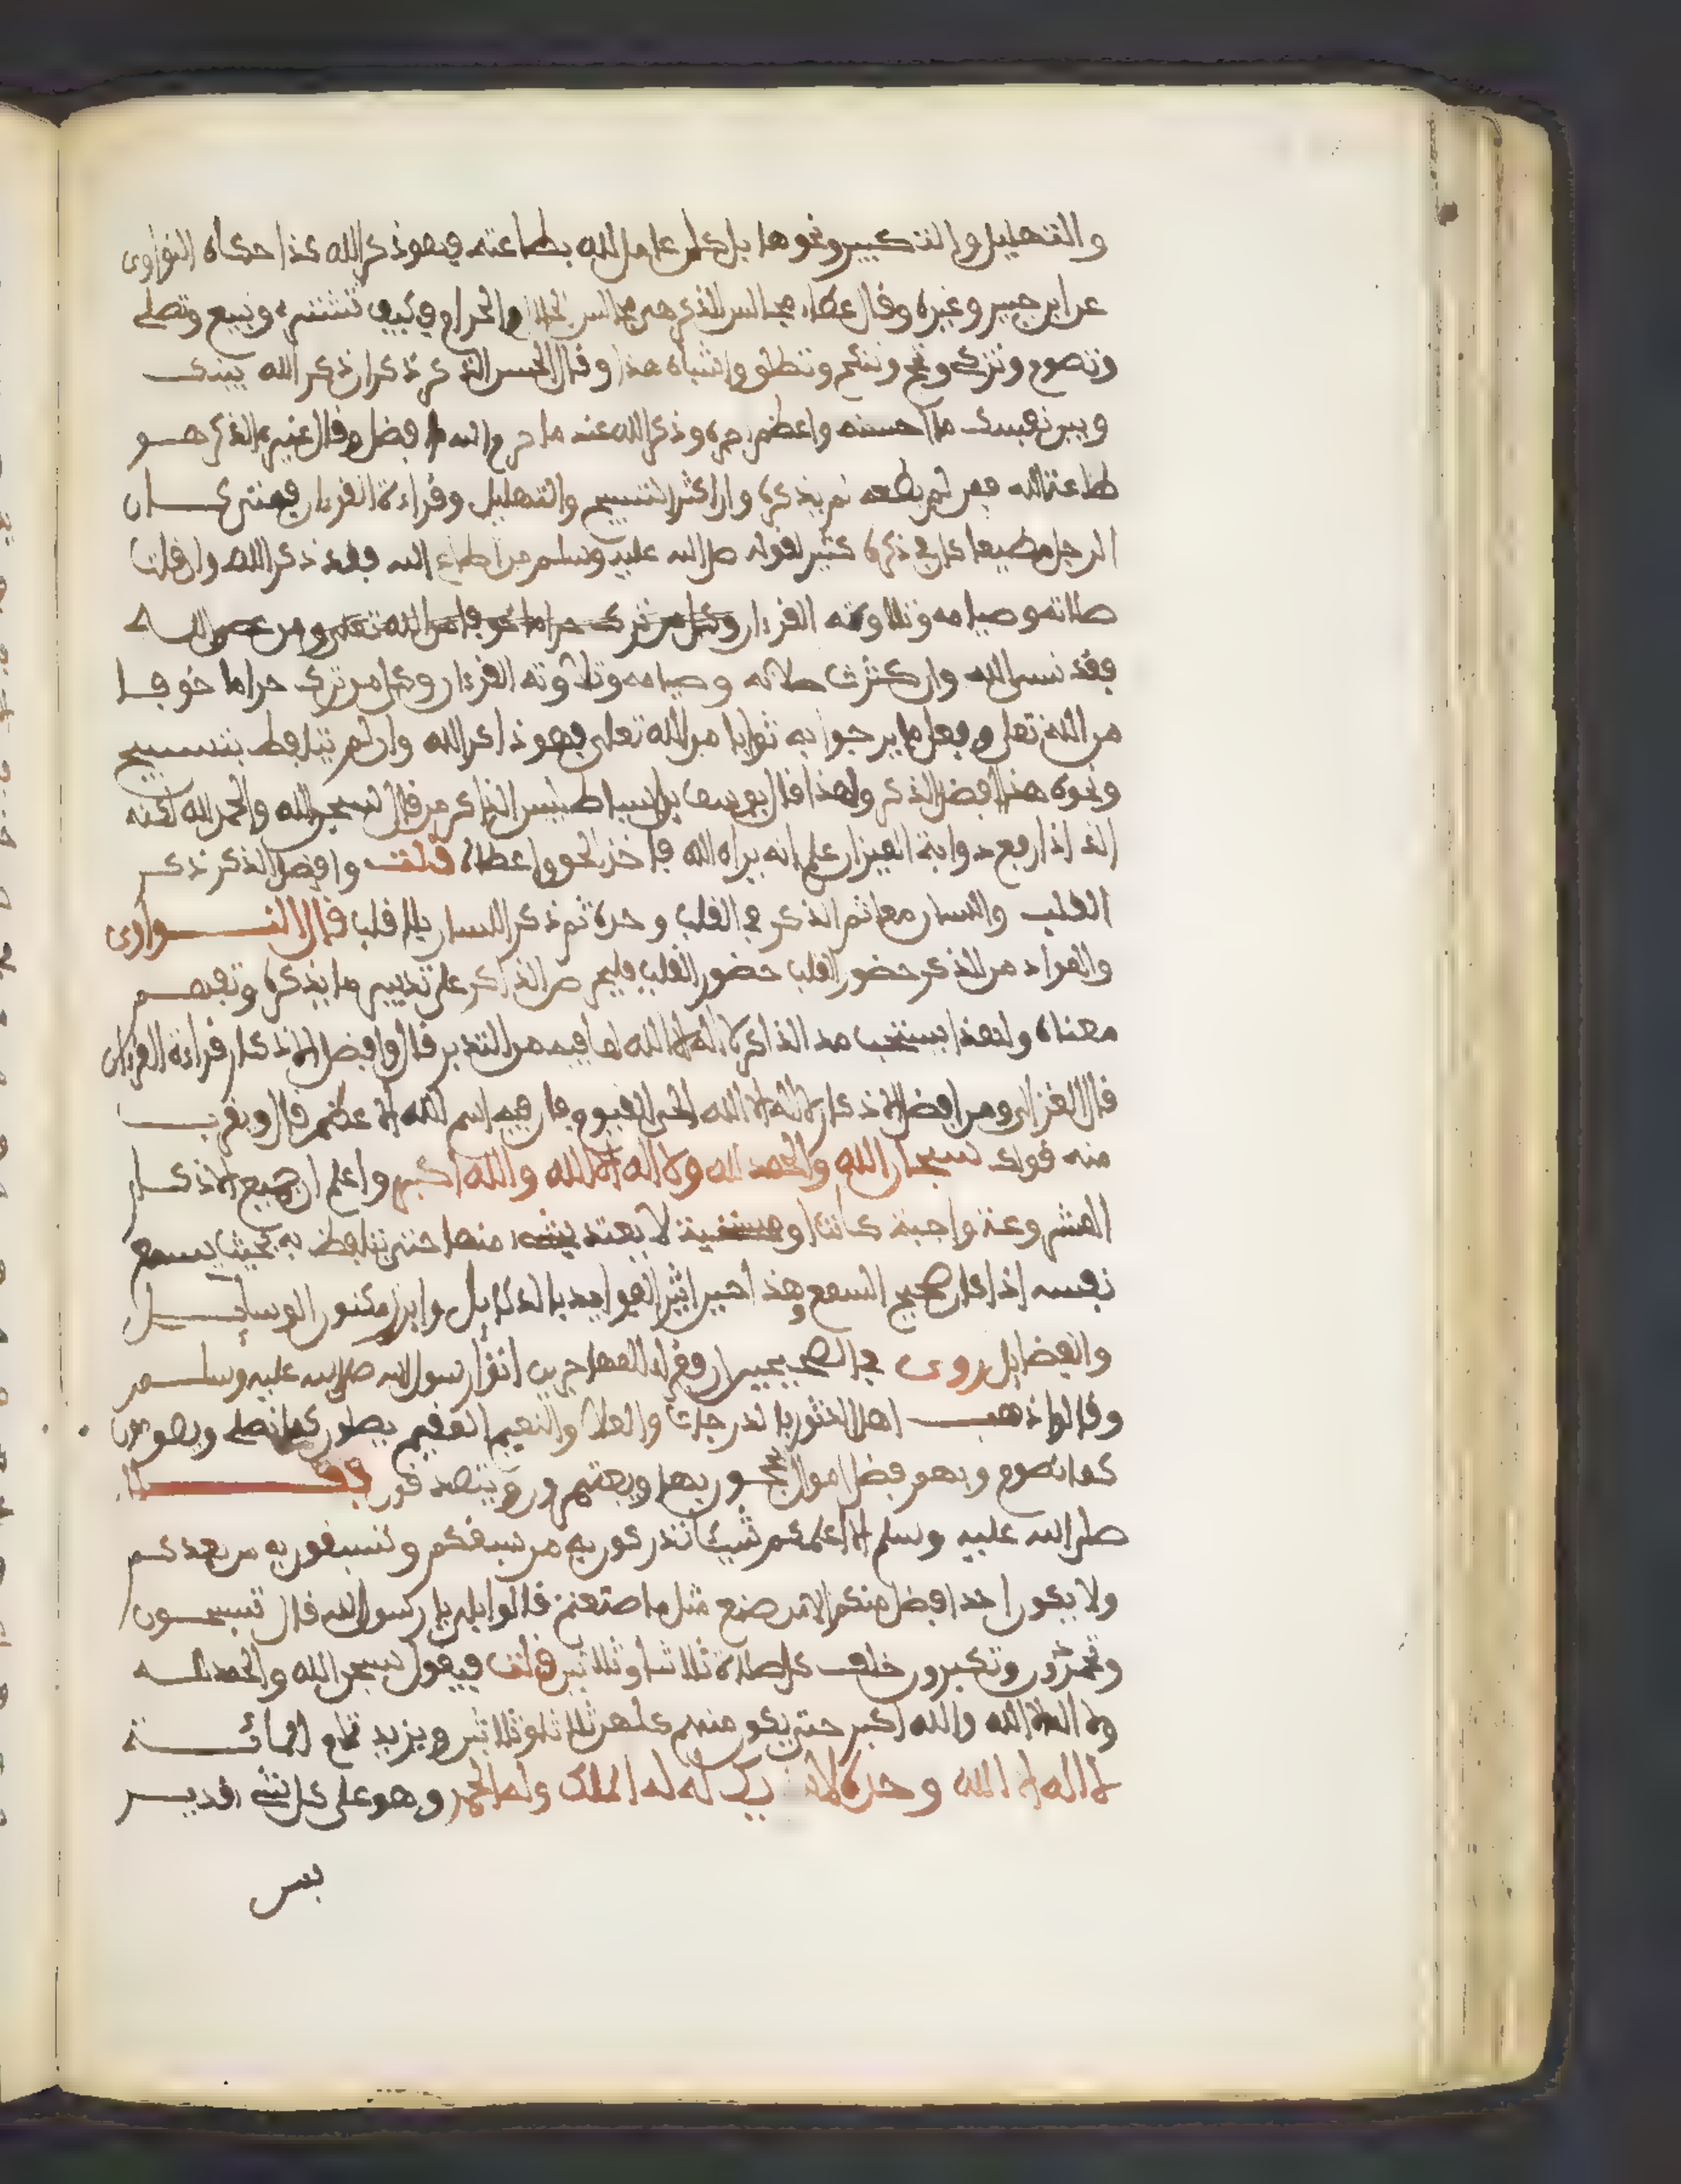 والتهليل والتكبير ونحوها بل كل عامل لله بطاعته فهو ذكر الله كذا حكاه النواوى
عن ابن جبير وغيره وقال عطاء مجالس الذكر هى مجالس الحلال والحرام في كيف تشترى وتبيع وتصلى
وتصوم وتزكى وتحج وتنكح وتطلق واشباه هذا وقال الحسن الذكر ذكران ذكر الله بينك
وبين نفسك ما احسنه واعظم اجره وذكر الله عند ما حرم الله افضل وقال غيره الذكر هو
طاعة الله فمن لم يطعه لم يذكره وان اكثر التسبيح والتهليل وقراءة القرءان فمتى كان
الرجل مطيعا كان في ذكره كثير لقوله صلى الله عليه وسلم من اطاع الله فقد ذكر الله وان قلت
صلاته وصيامه وتلاوته القرءان وكل من ترك حراما خوفا من الله تعلى ومن عصى الله
فقد نسى الله وان كثرت صلاته وصيامه وتلاوته القرءان وكل من ترك حراما خوفا
من الله تعلى وفعل ما يرجوا به ثوابا من الله تعلى فهو ذاكر الله وان لم يتلفظ بتسبيح
ونحوه هذا افضل الذكر ولهذا قال يوسف بن اسباط ليس الذاكر من قال سبحن الله والحمد لله لكنه
الذ اذا رفع دوابة الميزان علم انه يراه الله فاخذ الحق واعطاه قلت وافضل الذكر ذكر
القلب واللسان معا ثم الذكر في القلب وحده ثم ذكر اللسان بلا قلب قال النواوى
والمراد من الذكر حضور القلب حضور القلب فليحرص الذاكر على تدبير ما يذكره وتفهم
معناه ولهذا يستحب مد الذاكر لا اله الا الله لما فيه من التدبر قال وافضل الاذكار قراءة القرءان
قال الغزالى ومن افضل الاذكار لا اله الا الله الحى القيوم فان فيه اسم الله الاعظم قال ويقرب
منه قولك سبحان الله والحمد لله ولا اله الا الله والله اكبر واعلم ان جميع الاذكار
المشروعة واجبة كانت او لا يعتد بشىء منها حتى يتلفظ به بحيث يسمع
نفسه اذا كان صحيح السمع وهذ احين انثر الفوايد بالدلايل وابرز مكنون الوسايل
والفضايل روى في الصحيحين ان فقراء المهاجرين اتوا رسول الله صلى الله عليه وسلم
وقالوا ذهب اهل الدثور بالدرجات والعلا والنعيم المقيم يصلون كما نصلى ويصومون
كما نصوم ولهم فضل اموال يحجون بها ويعتمرون ويتصدقون فقال
صلى الله عليه وسلم الا اعلمكم شيئا تدركون به من سبقكم وتسبقون به من بعدكم
ولا يكون احد افضل منكم الا من صنع مثل ما صنعتم قالوا بلى يا رسول الله قال تسبحون
وتحمدون وتكبرون خلف كل صلاة ثلاثا وثلاثين قلت فيقول سبحن الله والحمد لله
ولا اله الا الله والله اكبر حتى يكون منهم كلهن ثلاثا وثلاثين ويزيد تمام المائة
لا اله الا الله وحده لا شريك له له الملك وله الحمد وهو على كل شىء قدير